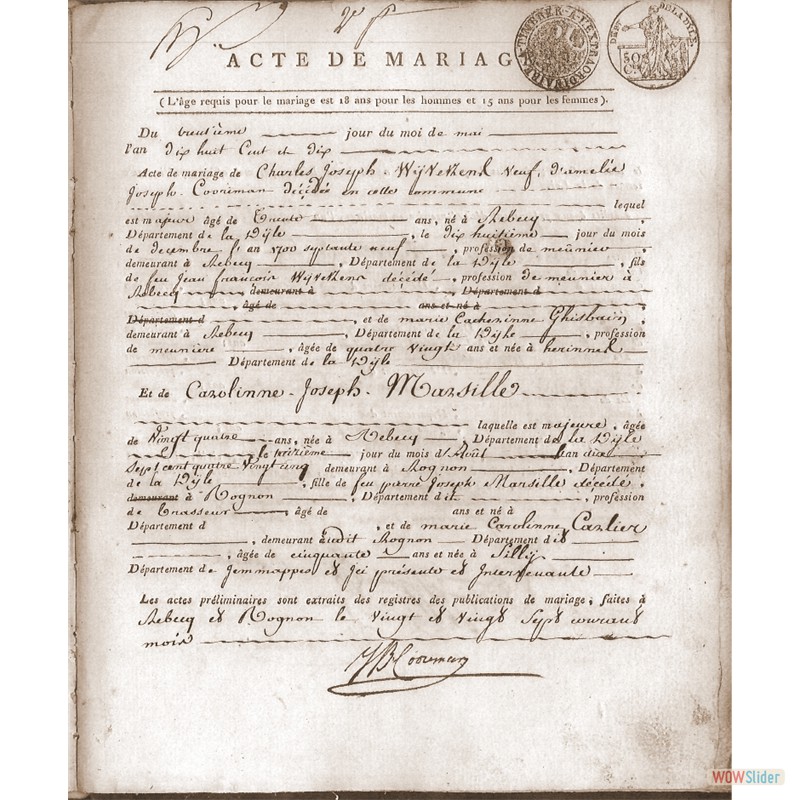 ACTE DE MARIAG
TIMBRER A L'EXTRAORDINAIRE
DEPT DE LA DYLE
50 C.
(L'âge requis pour le mariage est 18 ans pour les hommes et 15 ans pour les femmes).
Du trentième jour du moi de mai
l'an dix huit Cent et dix
Acte de mariage de Charles Joseph Veuf, d'amelie
Joseph Cooreman décédée en cette commune
lequel
est majeur âgé de trente ans, né à Rebecq
Département de la Dÿle, le dix huitième jour du mois
de decembre l'an 1700 septante neuf, profession de meûnier
demeurant à Rebecq, Département de la Dÿle, fils
de feu Jean francois décédé, profession de meunier à
Rebecq, demeurant à Département d
, âgé de ans et né à
Département d et de marie Catherinne Ghisbain,
demeurant à Rebecq, Département de la Dÿle, profession
de meuniere, âgée de quatre vingt ans et née à herinnes
Département de la Dÿle
Et de Carolinne Joseph Marsille
laquelle est majeure, âgée
de Vingt quatre ans, née à Rebecq, Département de la Dÿle
, le jour du mois d'Août l'an dix
sept cent quatre Vingt cinq demeurant à Rognon, Département
de la Dÿle, fille de feu pierre Joseph Marsille décédé,
demeurant à Rognon, Département dit, profession
de brasseur, âgé de ans et né à
Département d, et de marie Carolinne Carlier
, demeurant audit Rognon Département dit
, âgée de cinquante ans et née à Silly
Département de Jemmappes et Ici présente et Intervenante
Les actes préliminaires sont extraits des registres des publications de mariage, faites à
Rebecq et Rognon le Vingt et Vingt Sept courant
mois
JB Cooreman
WOWSlider